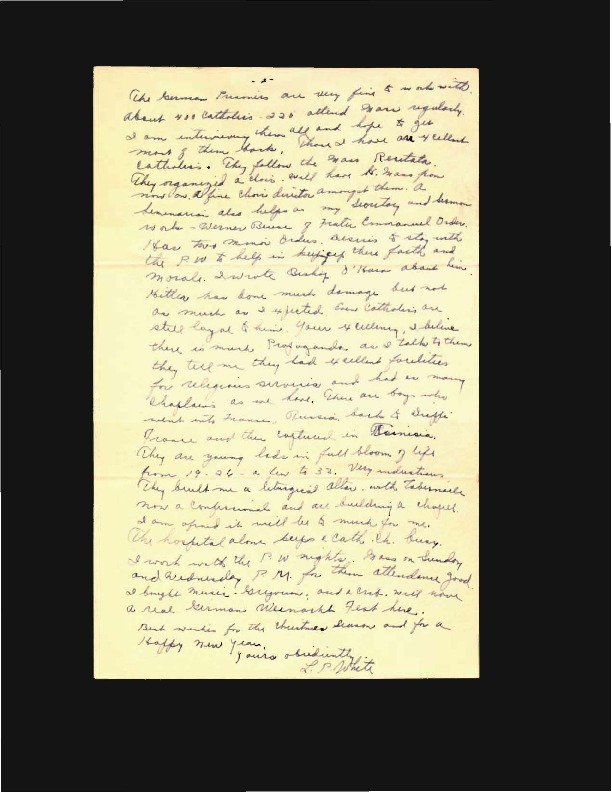 - 2 -
The German Prisoners are very fine to work with.
About 400 Catholics - 220 attend Mass regularly.
I am interviewing them all and hope to get
most of them back. Those I have are excellent
Catholics. They follow the Mass Recitata.
They organized a choir. Will have H. Mass from
now on. A fine choir director amongst them. A
Seminarian also helps as my Secretary and Sermon
work - Werner of Frater Emmanuel Order.
Has two minor Orders. Desires to stay with
the P.W to help in keeping there faith and
morale. I wrote Bishop O'Hara about him.
Hitler has done much damage but not
as much as I expected. Some Catholics are
still loyal to him. Your Excellency, I believe
there is much Propaganda as I talk to them
they tell me they had excellent facilities
for religious services and had as many
Chaplains as we have. There are boys who
went into France, Russia, back to
France and then captured in Tunisia.
They are young lads in full bloom of life
from 19-26 - a few to 32. Very industrious.
They built me a liturgical altar with Tabernacle
now a confessional and are building a chapel.
I am afraid it will be to much for me.
The hospital alone keeps a Cath. Ch. busy.
I work with the P.W nights. Mass on Sunday
and Wednesday P.M. for them attendance good
I bought music - Gregorian, and a Crib. Will have
a real German Weinacht Fest here.
Best wishes for the Christmas Season and for a
Happy New Year.
Yours obediently
L. P. White